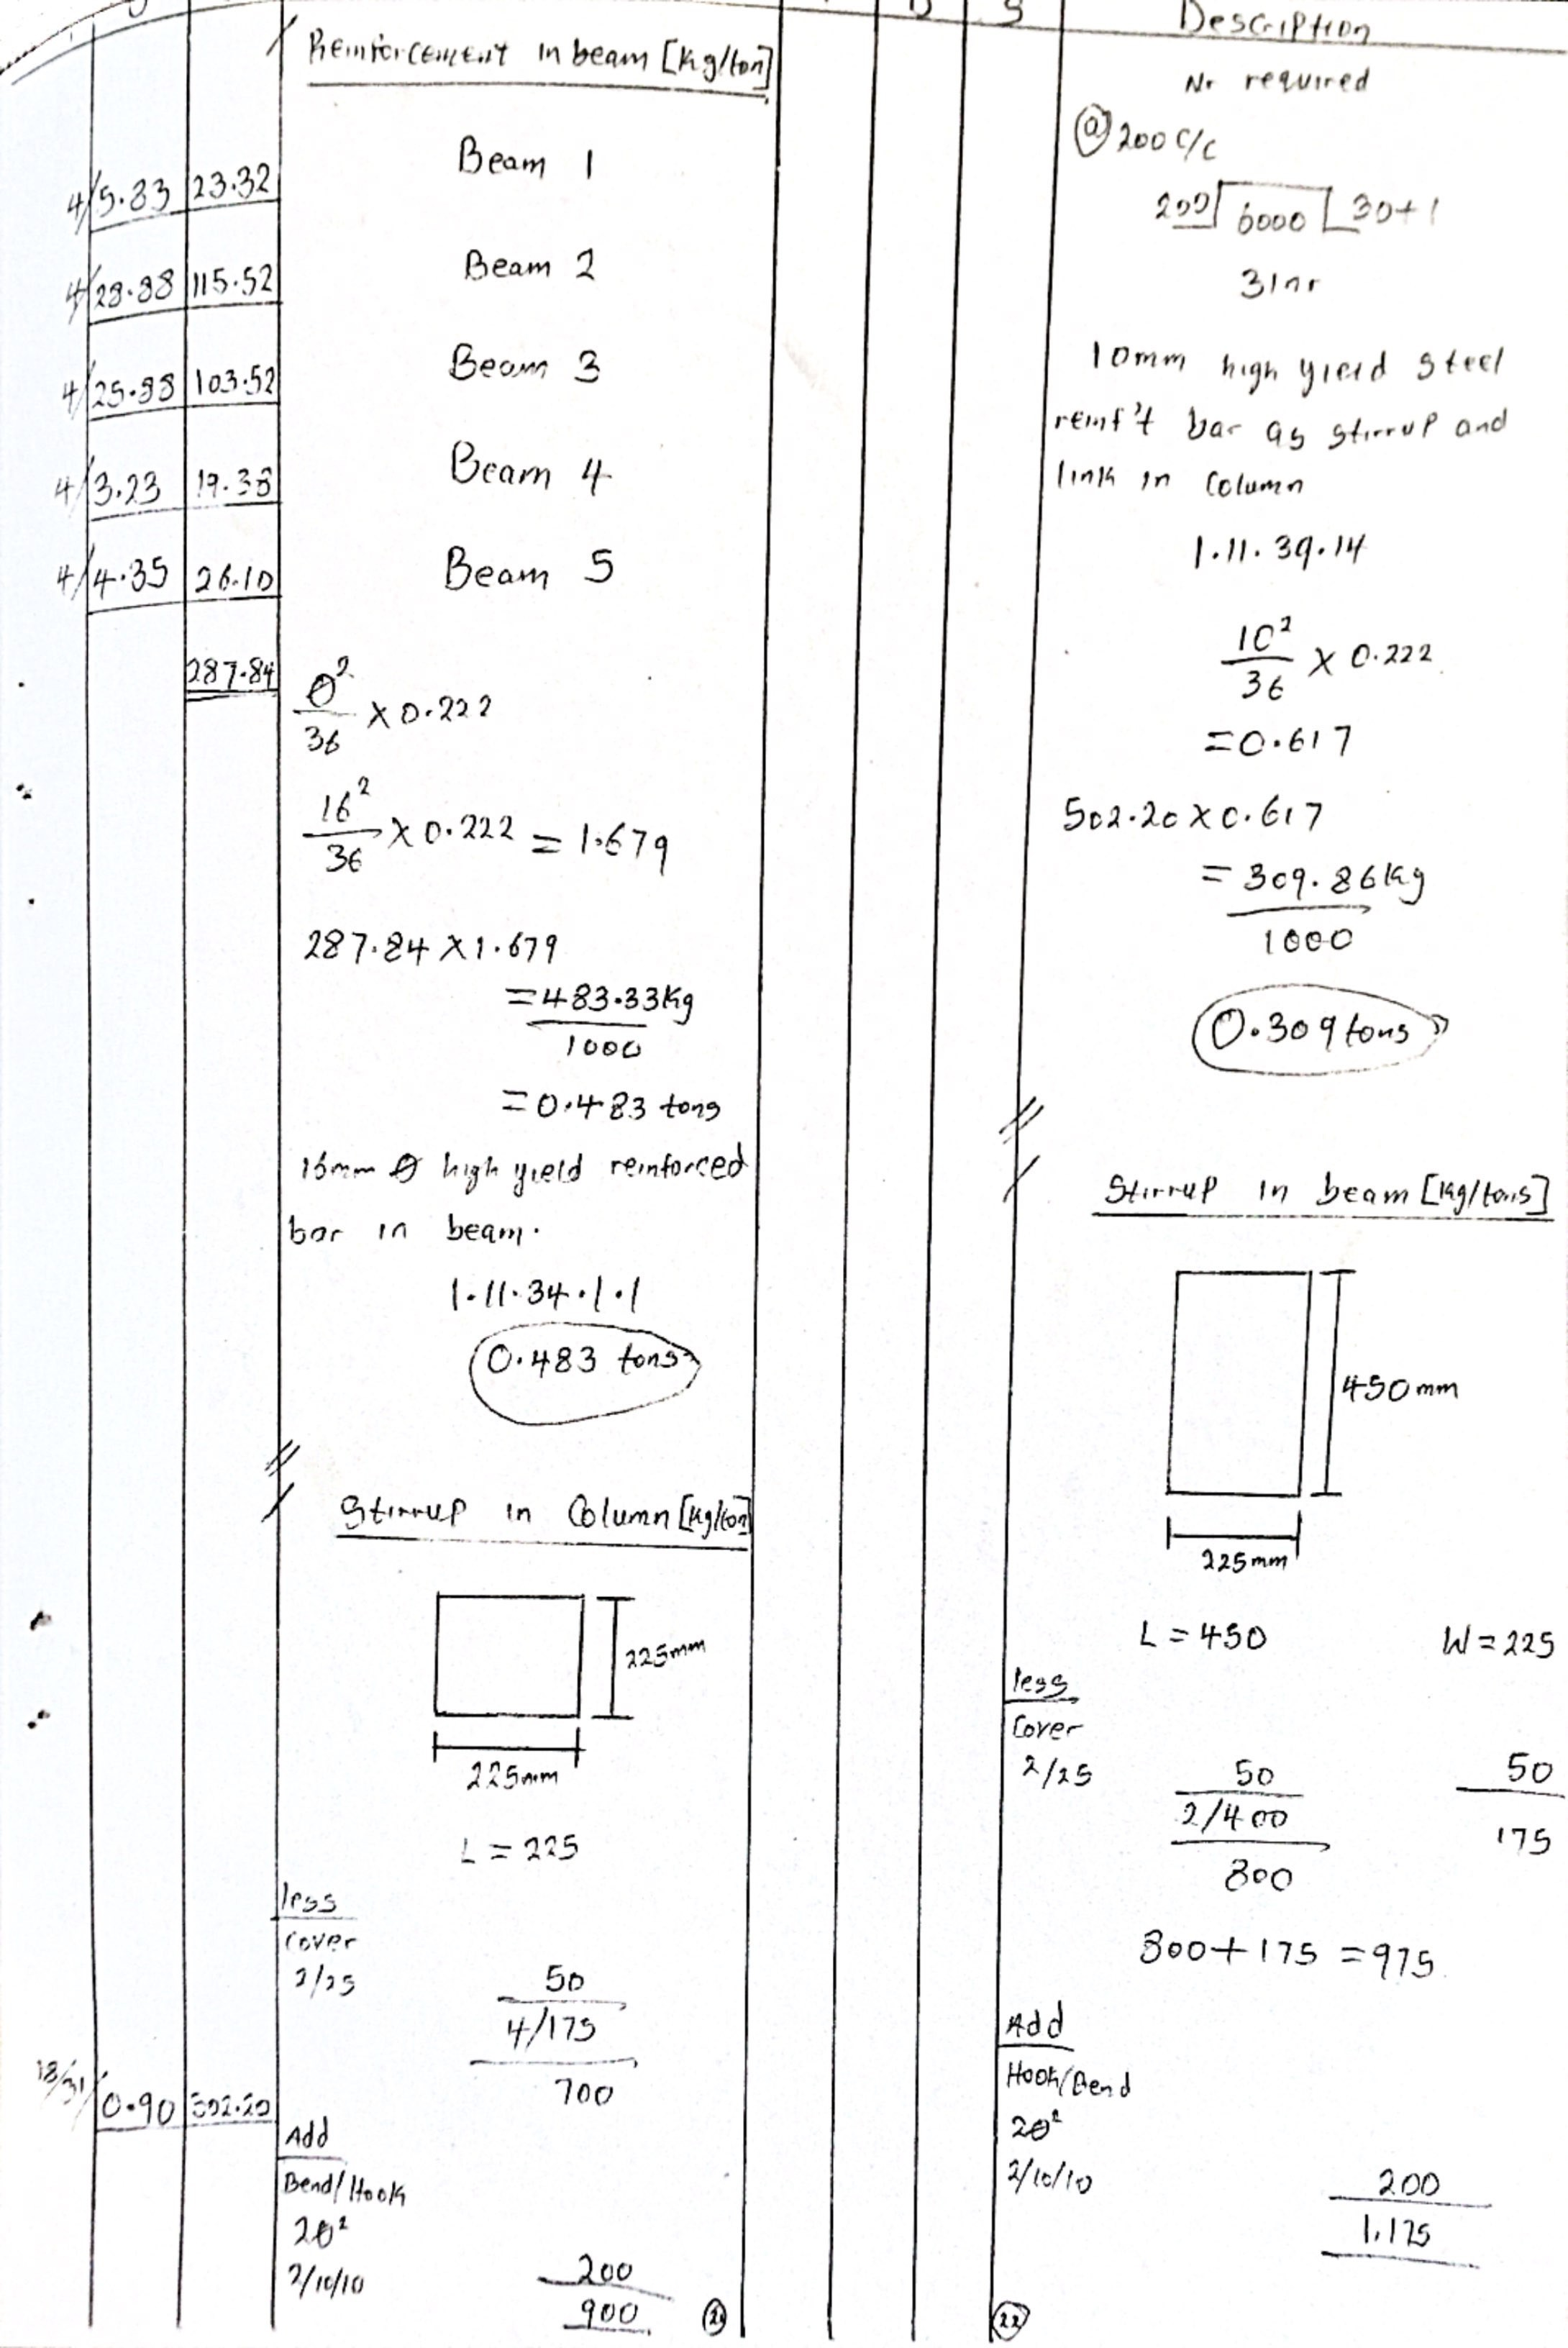 Reinforcement in beam [kg/ton]
4/5.83 23.32 Beam 1
4/28.88 115.52 Beam 2
4/25.88 103.52 Beam 3
4/3.23 19.38 Beam 4
4/4.35 26.10 Beam 5
287.84
Ø²/36 × 0.222
16²/36 × 0.222 = 1.679
287.84 × 1.679
= 483.33kg
1000
= 0.483 tons
16mm Ø high yield reinforced
bar in beam.
1.11.34.1.1
0.483 tons
Stirrup in Column [kg/ton]
225mm
225mm
L = 225
less
Cover
2/25 50
4/175
700
18/31/0.90 502.20
Add
Bend/Hook
2Ø²
2/10/10 200
900
S
Description
Nr required
@ 200 c/c
200 6000 30+1
31nr
10mm high yield steel
reinf't bar as stirrup and
link in Column
1.11.39.14
10²/36 × 0.222
= 0.617
502.20 × 0.617
= 309.86kg
1000
0.309 tons
Stirrup in beam [kg/tons]
450mm
225mm
L = 450 W = 225
less
Cover
2/25 50 50
2/400 175
800
800 + 175 = 975
Add
Hook/Bend
2Ø²
2/10/10 200
1,175
22